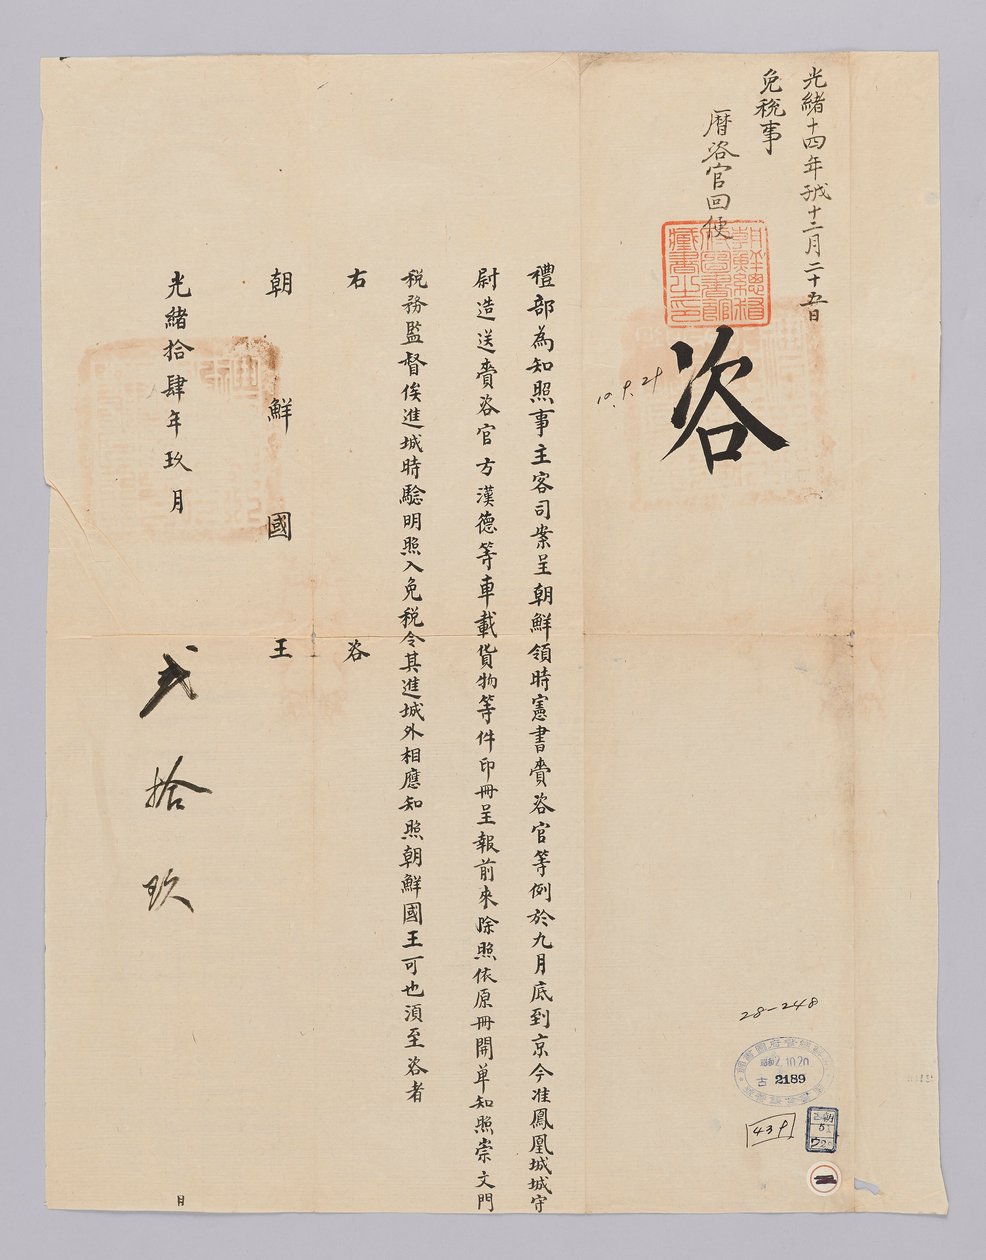 光緒十四年戊子十二月二十五日
免稅事
曆咨官回便
朝鮮總督府圖書館藏書之印
咨
10.9.21
禮部為知照事主客司案呈朝鮮領時憲書賫咨官等例於九月底到京今准鳳凰城城守
尉造送賫咨官方漢德等車載貨物等件印冊呈報前來除照依原冊開單知照崇文門
稅務監督俟進城時驗明照入免稅令其進城外相應知照朝鮮國王可也須至咨者
右咨
朝鮮國王
光緒拾肆年玖月
貳拾玖
日
28-248
2.10.20
古 2189
439